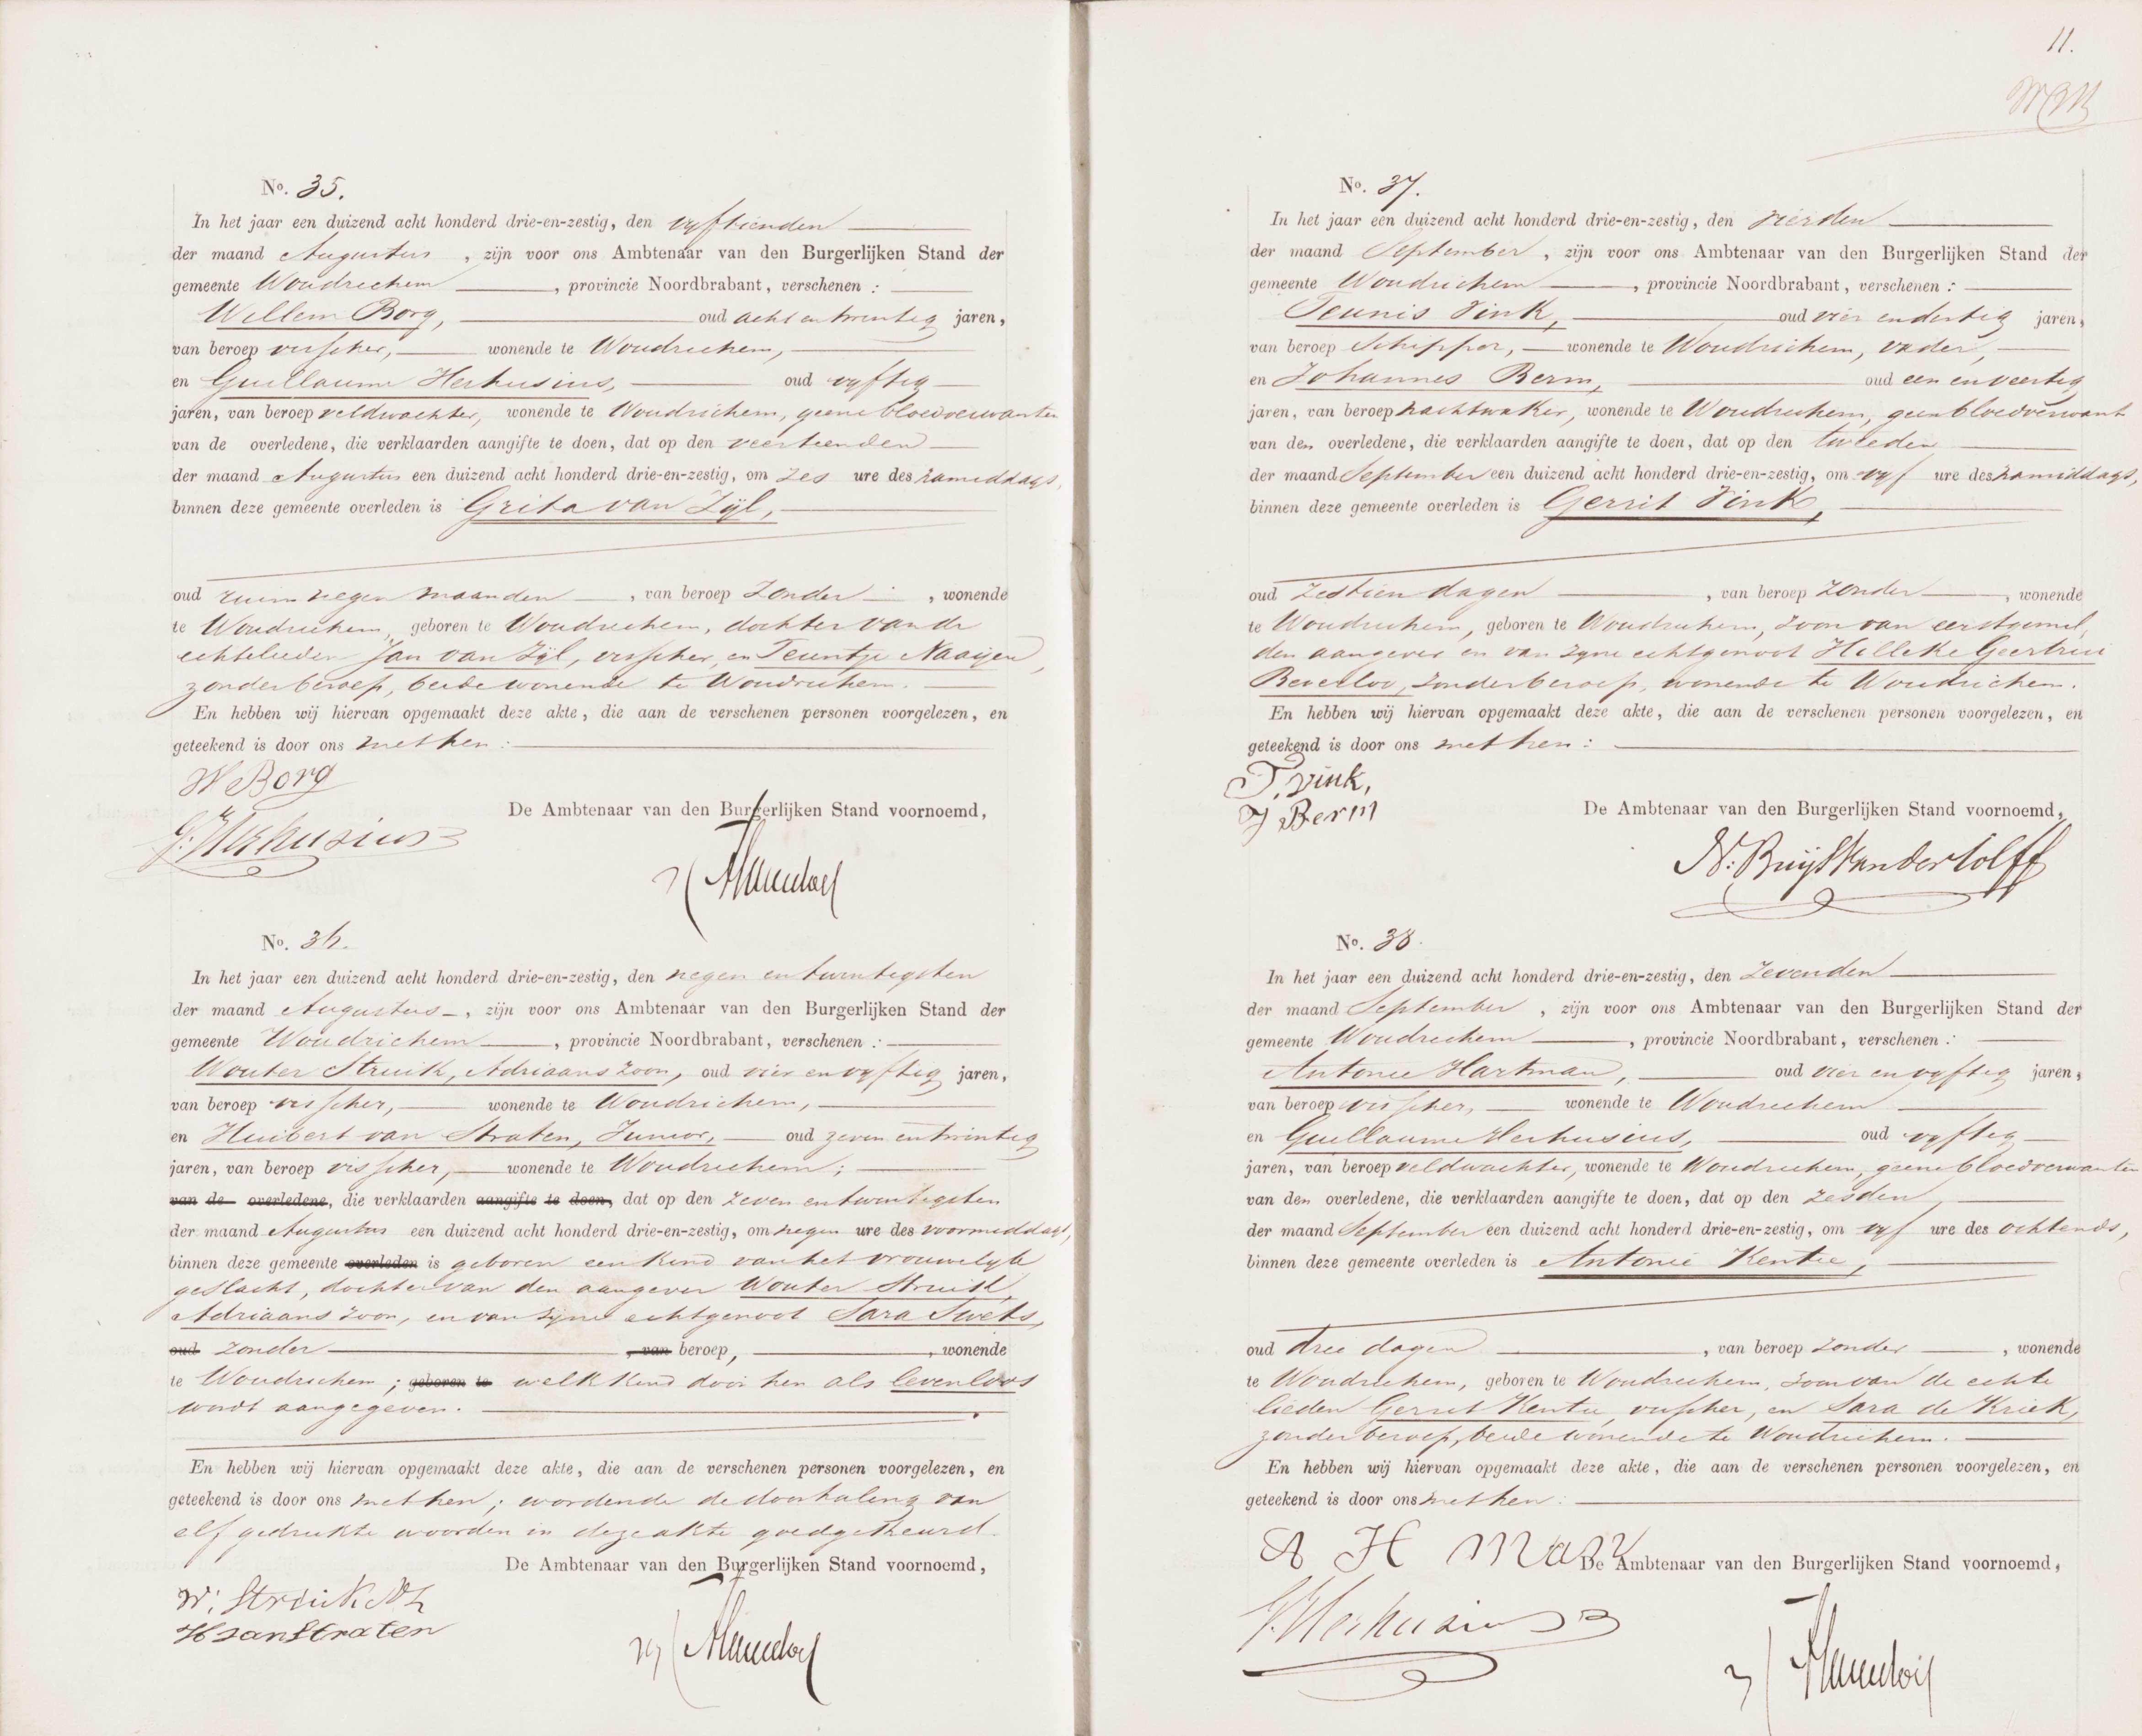 No. 35.
In het jaar een duizend acht honderd drie-en-zestig, den vyftienden
der maand Augustus , zijn voor ons Ambtenaar van den Burgerlijken Stand der
gemeente Woudrichem , provincie Noordbrabant, verschenen :
Willem Borg, oud acht en twintig jaren,
van beroep visscher, wonende te Woudrichem,
en Guillaume Herhusius, oud vyftig
jaren, van beroep veldwachter, wonende te Woudrichem, geene bloedverwanten
van de overledene, die verklaarden aangifte te doen, dat op den veertienden
der maand Augustus een duizend acht honderd drie-en-zestig, om zes ure des namiddags,
binnen deze gemeente overleden is Grita van Zyl,
oud ruim negen maanden , van beroep zonder , wonende
te Woudrichem, geboren te Woudrichem, dochter van de
echtelieden Jan van Zyl, visscher, en Teuntje Naaijen,
zonder beroep, beide wonende te Woudrichem.
En hebben wij hiervan opgemaakt deze akte, die aan de verschenen personen voorgelezen, en
geteekend is door ons met hen :
W Borg
G. Herhusius
De Ambtenaar van den Burgerlijken Stand voornoemd,
No. 36.
In het jaar een duizend acht honderd drie-en-zestig, den negen en twintigsten
der maand Augustus , zijn voor ons Ambtenaar van den Burgerlijken Stand der
gemeente Woudrichem , provincie Noordbrabant, verschenen :
Wouter Struik, Adriaans zoon, oud vier en vyftig jaren,
van beroep visscher, wonende te Woudrichem,
en Huibert van Straten, Junior, oud zeven en twintig
jaren, van beroep visscher, wonende te Woudrichem;
van de overledene, die verklaarden aangifte te doen, dat op den zeven en twintigsten
der maand Augustus een duizend acht honderd drie-en-zestig, om negen ure des voormiddags,
binnen deze gemeente overleden is geboren een kind van het vrouwelyk
geslacht, dochter van den aangever Wouter Struik,
Adriaans zoon, en van zyne echtgenoot Sara Swets,
oud zonder , van beroep, , wonende
te Woudrichem; geboren te welk kind door hen als levenloos
wordt aangegeven.
En hebben wij hiervan opgemaakt deze akte, die aan de verschenen personen voorgelezen, en
geteekend is door ons met hen; wordende de doorhaling van
elf gedrukte woorden in deze akte goedgekeurd.
De Ambtenaar van den Burgerlijken Stand voornoemd,
W: Struik Az
H van Straten
11.
No. 37.
In het jaar een duizend acht honderd drie-en-zestig, den vierden
der maand September , zijn voor ons Ambtenaar van den Burgerlijken Stand der
gemeente Woudrichem , provincie Noordbrabant, verschenen :
Teunis Vink, oud vier en dertig jaren,
van beroep Schipper, wonende te Woudrichem, vader,
en Johannes Berm, oud een en veertig
jaren, van beroep nachtwaker, wonende te Woudrichem, geen bloedverwant
van den overledene, die verklaarden aangifte te doen, dat op den tweeden
der maand September een duizend acht honderd drie-en-zestig, om vyf ure des namiddags,
binnen deze gemeente overleden is Gerrit Vink,
oud zestien dagen , van beroep zonder , wonende
te Woudrichem, geboren te Woudrichem, zoon van eerstgemel
den aangever en van zyne echtgenoot Hilleke Geertrui
Beverloo, zonder beroep, wonende te Woudrichem.
En hebben wij hiervan opgemaakt deze akte, die aan de verschenen personen voorgelezen, en
geteekend is door ons met hen :
T. vink,
J Berm
De Ambtenaar van den Burgerlijken Stand voornoemd,
No. 38.
In het jaar een duizend acht honderd drie-en-zestig, den zevenden
der maand September , zijn voor ons Ambtenaar van den Burgerlijken Stand der
gemeente Woudrichem , provincie Noordbrabant, verschenen :
Antonie Hartman, oud vier en vyftig jaren,
van beroep visscher, wonende te Woudrichem
en Guillaume Herhusius, oud vyftig
jaren, van beroep veldwachter, wonende te Woudrichem, geene bloedverwanten
van den overledene, die verklaarden aangifte te doen, dat op den zesden
der maand September een duizend acht honderd drie-en-zestig, om vyf ure des ochtends,
binnen deze gemeente overleden is Antonie Kentie,
oud drie dagen , van beroep zonder , wonende
te Woudrichem, geboren te Woudrichem, zoon van de echte
lieden Gerrit Kentie, visscher, en Sara de Kriek,
zonder beroep, beide wonende te Woudrichem.
En hebben wij hiervan opgemaakt deze akte, die aan de verschenen personen voorgelezen, en
geteekend is door ons met hen :
A H Man
De Ambtenaar van den Burgerlijken Stand voornoemd,
G. Herhusius